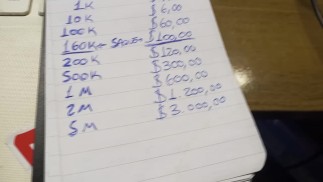 1K
10K $6,00
100K $60,00
160K ← SAQUE → $100,00
200K $120,00
500K $300,00
1M $600,00
2M $1.200,00
5M $3.000,00